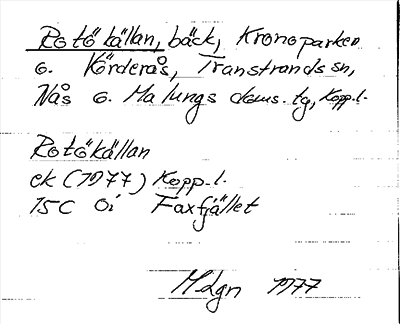 Rotökällan, bäck, Kronoparken
o. Körderås, Transtrands sn,
Nås o. Malungs doms. tg, Kopp. l.
Rotökällan
ek (1977) Kopp. l.
15C 0i Faxfjället
MLgn 1977